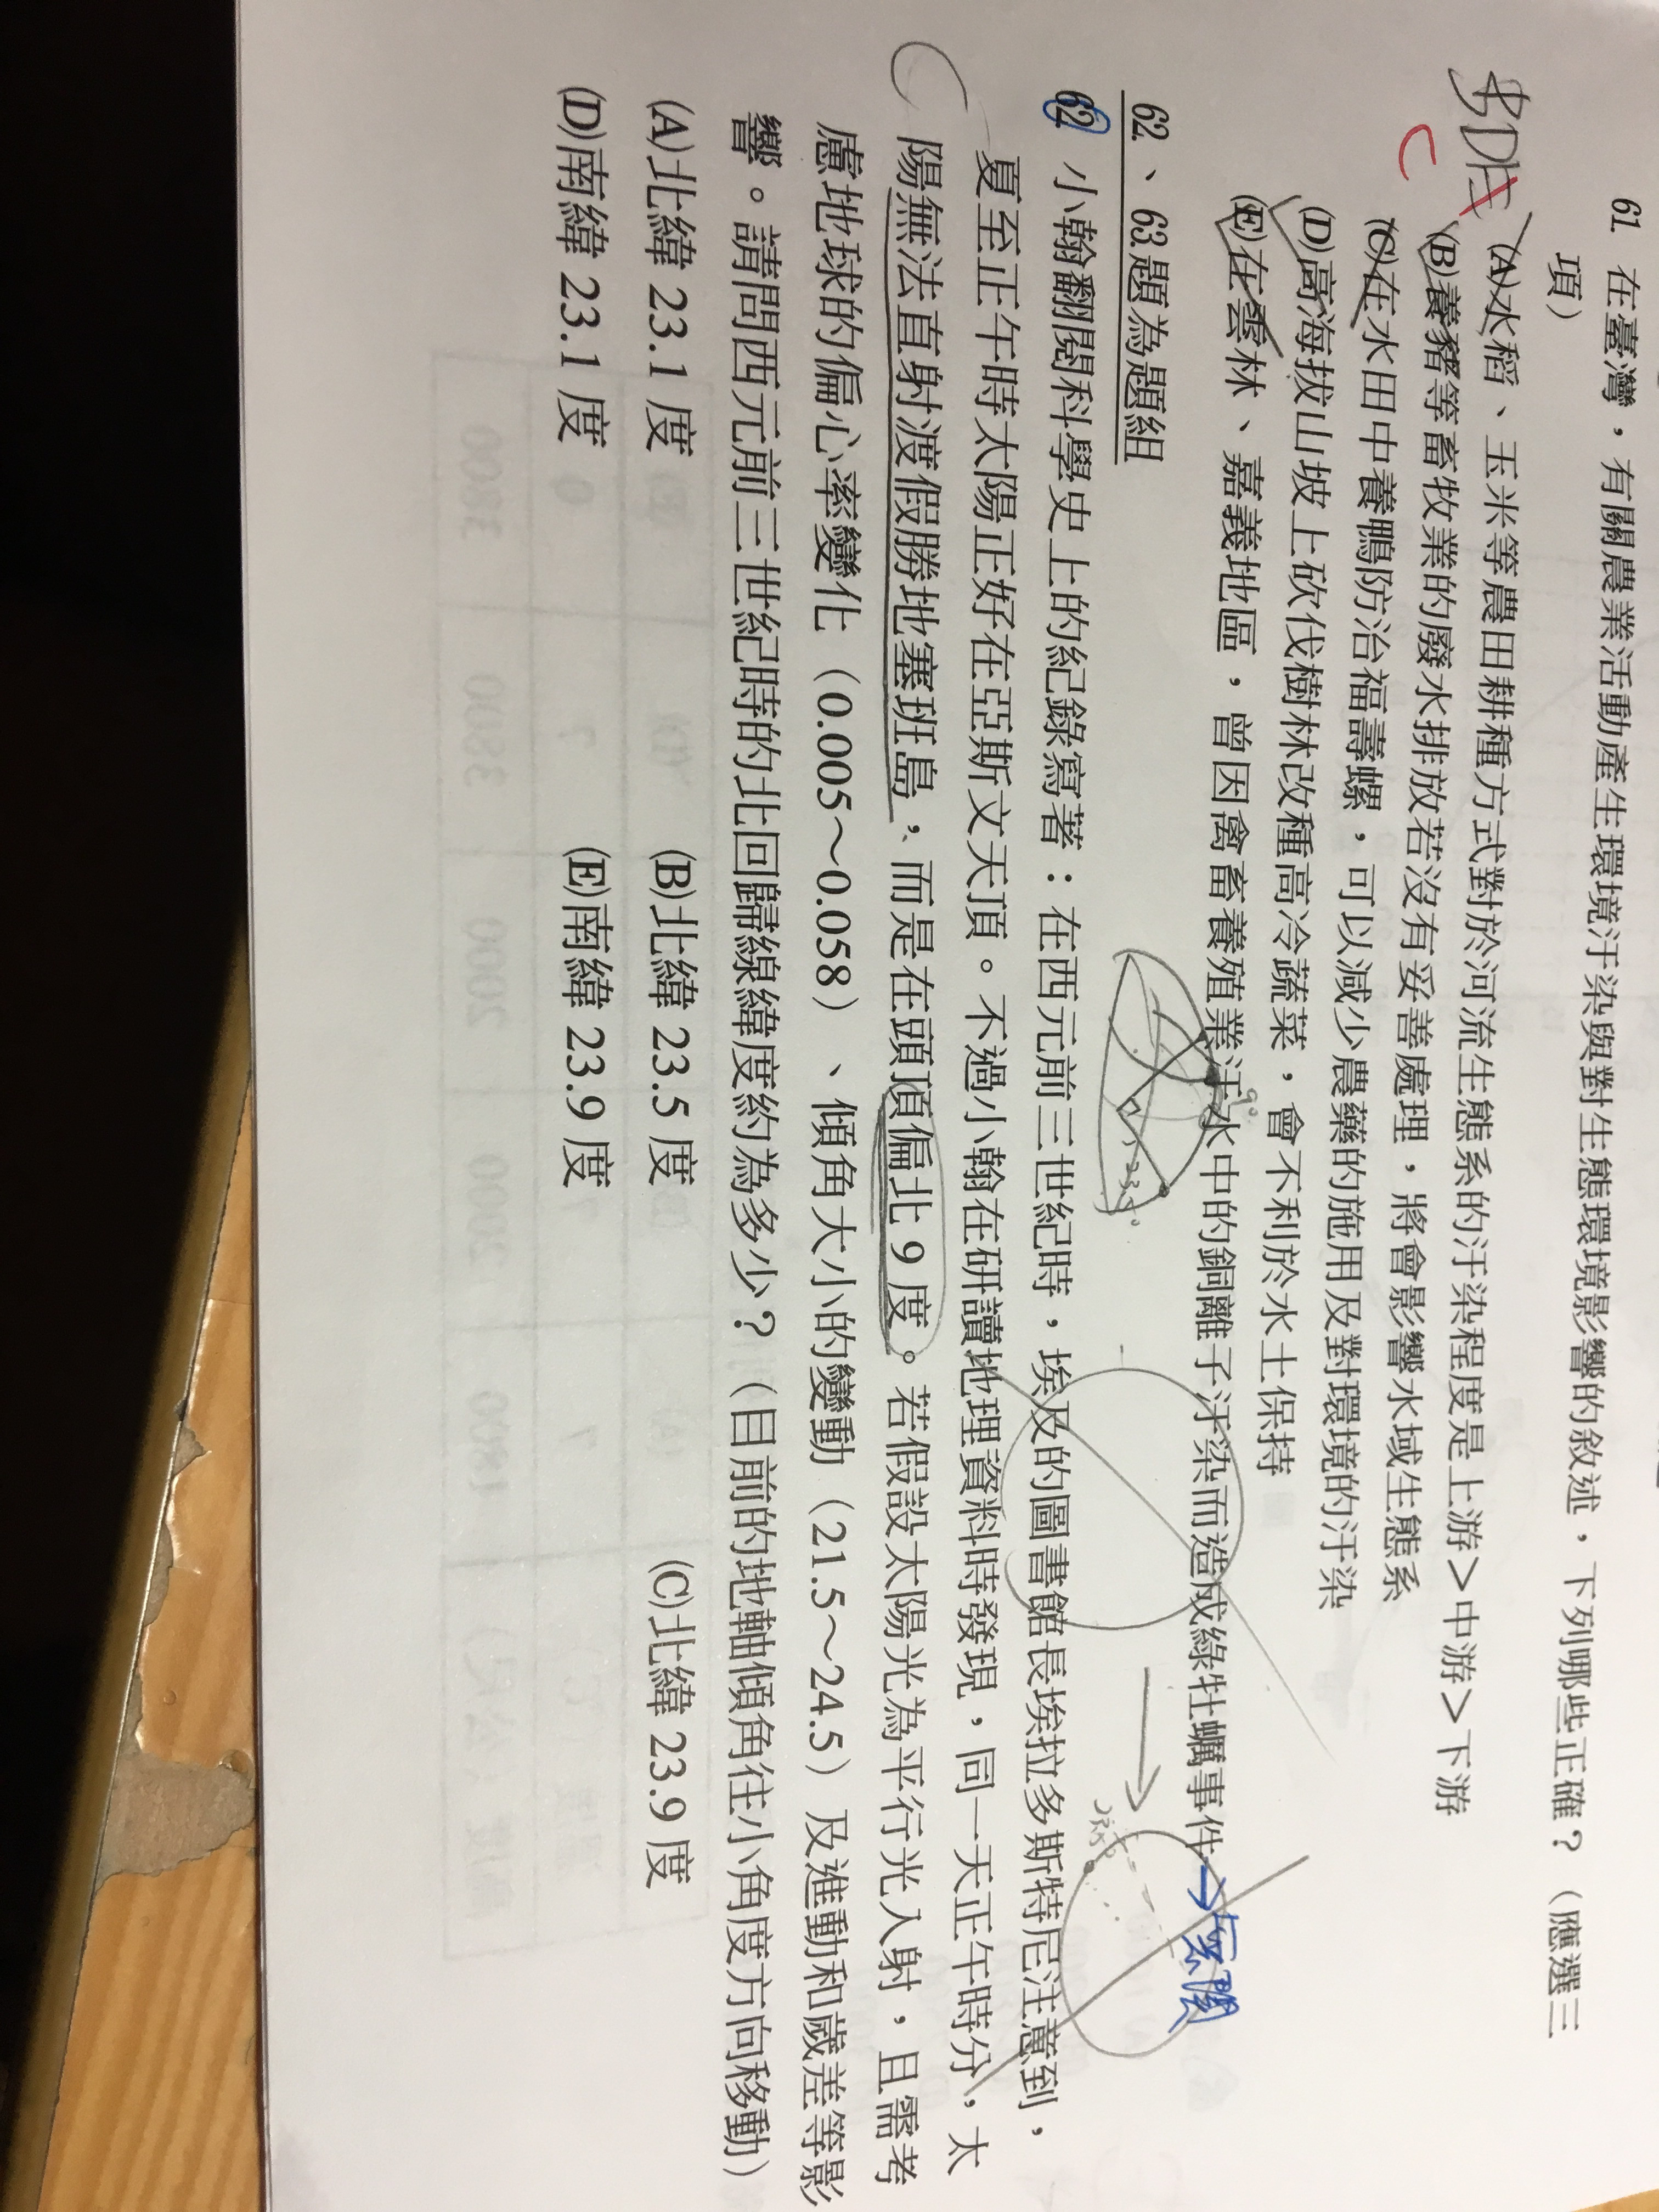 61. 在臺灣，有關農業活動產生環境汙染與對生態環境影響的敘述，下列哪些正確？（應選三
項）
BDE
C
(A)水稻、玉米等農田耕種方式對於河流生態系的汙染程度是上游＞中游＞下游
(B)養豬等畜牧業的廢水排放若沒有妥善處理，將會影響水域生態系
(C)在水田中養鴨防治福壽螺，可以減少農藥的施用及對環境的汙染
(D)高海拔山坡上砍伐樹林改種高冷蔬菜，會不利於水土保持
(E)在雲林、嘉義地區，曾因禽畜養殖業汙水中的銅離子汙染而造成綠牡蠣事件→無關
62、63.題為題組
9°
23.5°
62. 小翰翻閱科學史上的紀錄寫著：在西元前三世紀時，埃及的圖書館長埃拉多斯特尼注意到，
夏至正午時太陽正好在亞斯文天頂。不過小翰在研讀地理資料時發現，同一天正午時分，太
C
陽無法直射渡假勝地塞班島，而是在頭頂偏北 9 度。若假設太陽光為平行光入射，且需考
慮地球的偏心率變化（0.005～0.058）、傾角大小的變動（21.5～24.5）及進動和歲差等影
響。請問西元前三世紀時的北回歸線緯度約為多少？（目前的地軸傾角往小角度方向移動）
(A)北緯 23.1 度 (B)北緯 23.5 度 (C)北緯 23.9 度
(D)南緯 23.1 度 (E)南緯 23.9 度